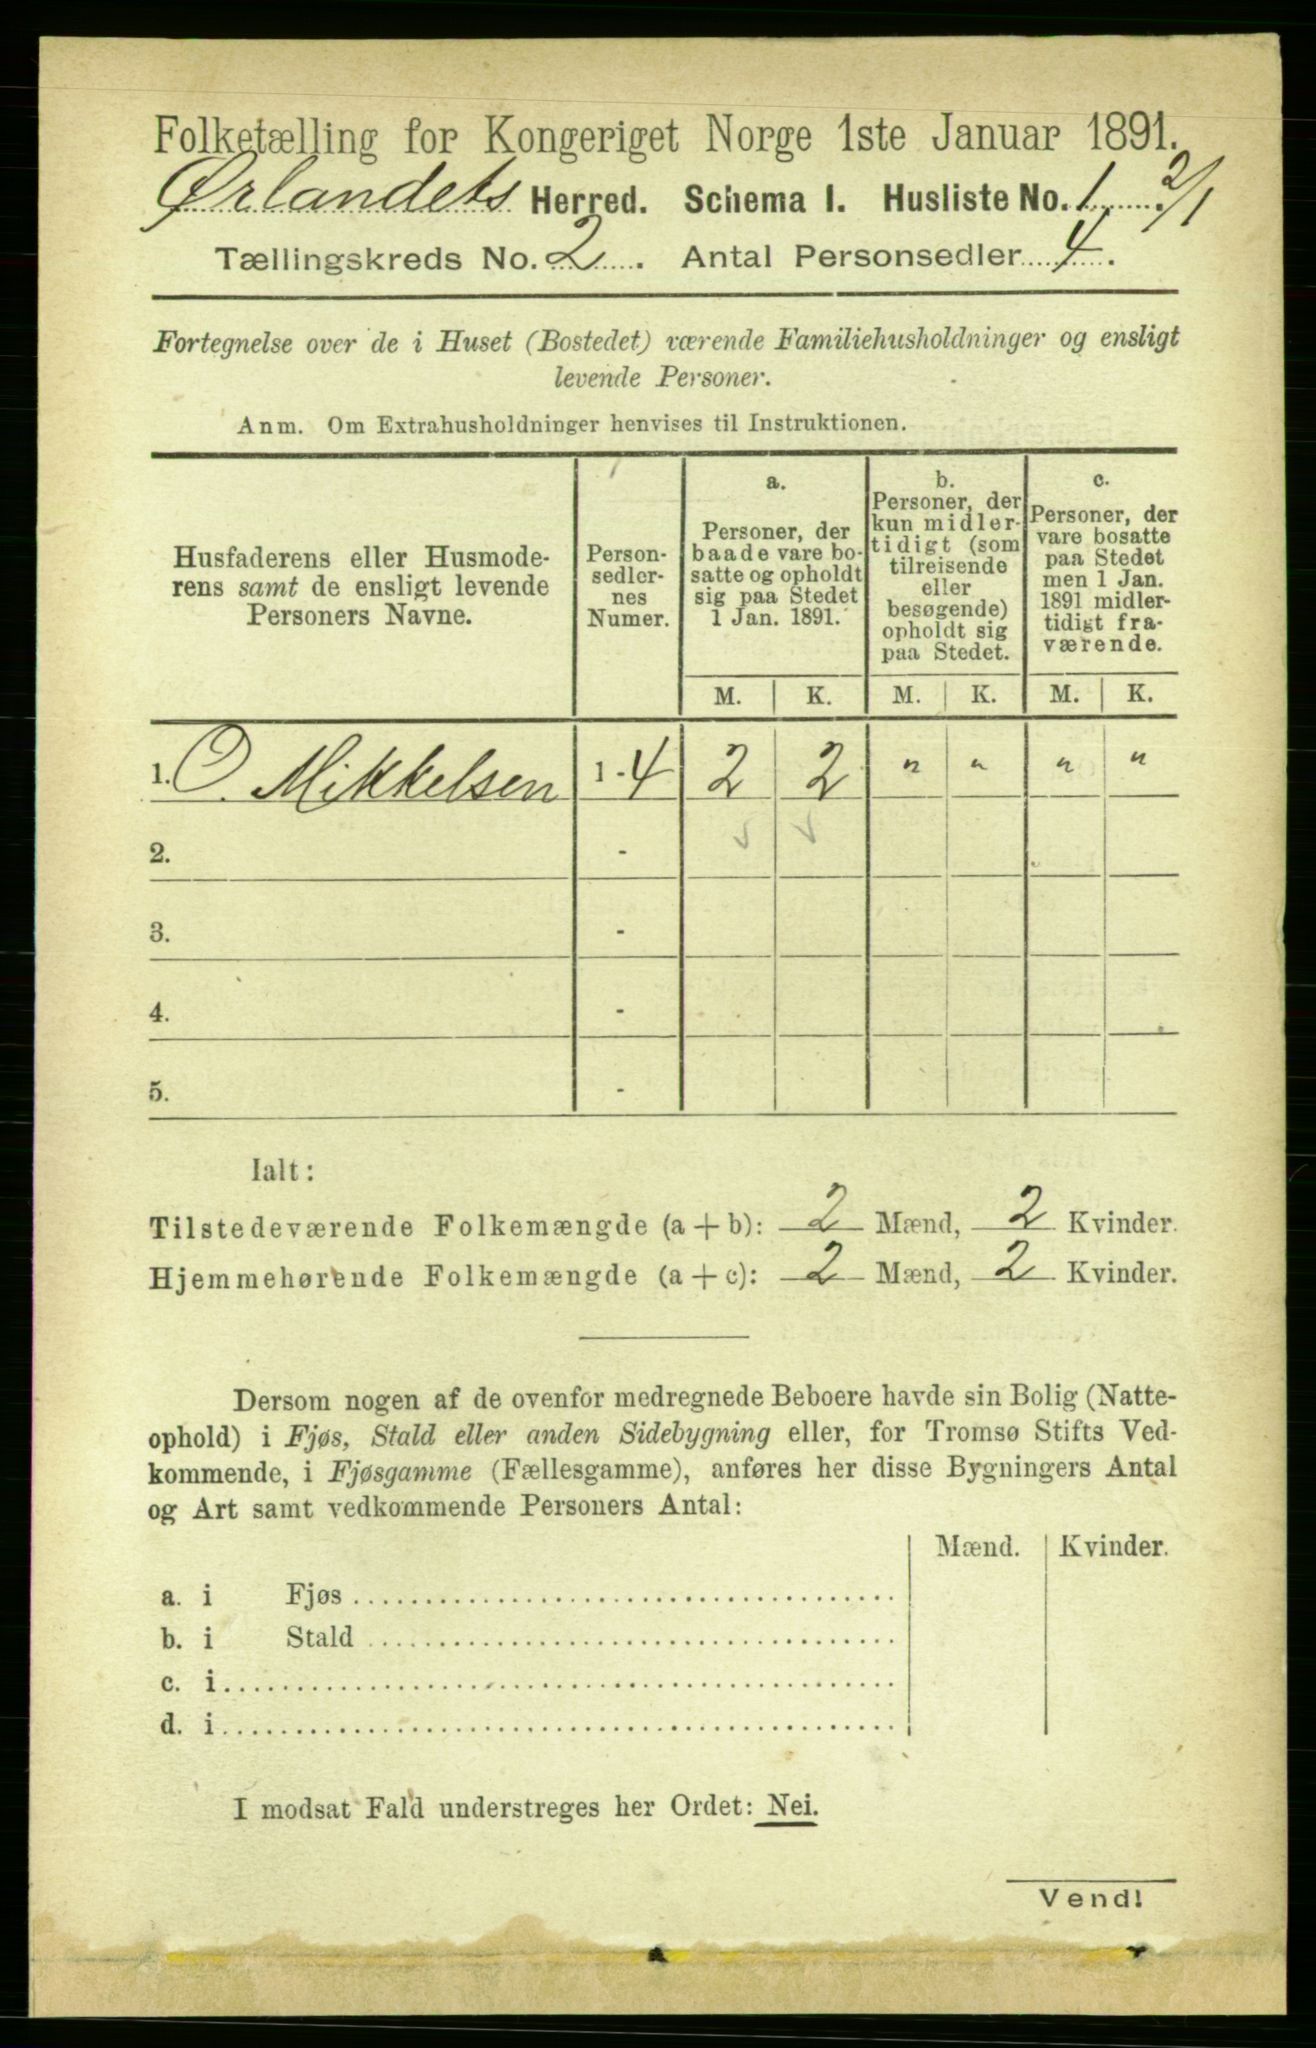 Folketælling for Kongeriget Norge 1ste Januar 1891.
Ørlandets Herred. Schema I. Husliste No. 1. 2/1
Tællingskreds No. 2. Antal Personsedler 4.
Fortegnelse over de i Huset (Bostedet) værende Familiehusholdninger og ensligt
levende Personer.
Anm. Om Extrahusholdninger henvises til Instruktionen.
Husfaderens eller Husmode-
rens samt de ensligt levende
Personers Navne.
Person-
sedler-
nes
Numer.
a.
Personer, der
baade vare bo-
satte og opholdt
sig paa Stedet
1 Jan. 1891.
b.
Personer, der
kun midler-
tidigt (som
tilreisende
eller
besøgende)
opholdt sig
paa Stedet.
c.
Personer, der
vare bosatte
paa Stedet
men 1 Jan.
1891 midler-
tidigt fra-
værende.
M. K. M. K. M. K.
1. O. Mikkelsen 1 - 4 2 2 " " " "
2. -
3. -
4. -
5. -
Ialt:
Tilstedeværende Folkemængde (a + b): 2 Mænd, 2 Kvinder.
Hjemmehørende Folkemængde (a + c): 2 Mænd, 2 Kvinder.
Dersom nogen af de ovenfor medregnede Beboere havde sin Bolig (Natte-
ophold) i Fjøs, Stald eller anden Sidebygning eller, for Tromsø Stifts Ved-
kommende, i Fjøsgamme (Fællesgamme), anføres her disse Bygningers Antal
og Art samt vedkommende Personers Antal:
Mænd. Kvinder.
a. i Fjøs
b. i Stald
c. i
d. i
I modsat Fald understreges her Ordet: Nei.
Vend!